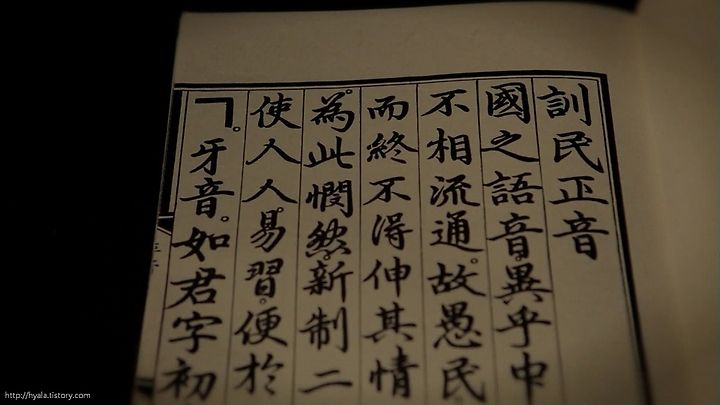 訓民正音
國之語音。異乎中
不相流通。故愚民
而終不得伸其情
為此憫然。新制二
使人人易習。便於
ㄱ。牙音。如君字初
http://hyala.tistory.com